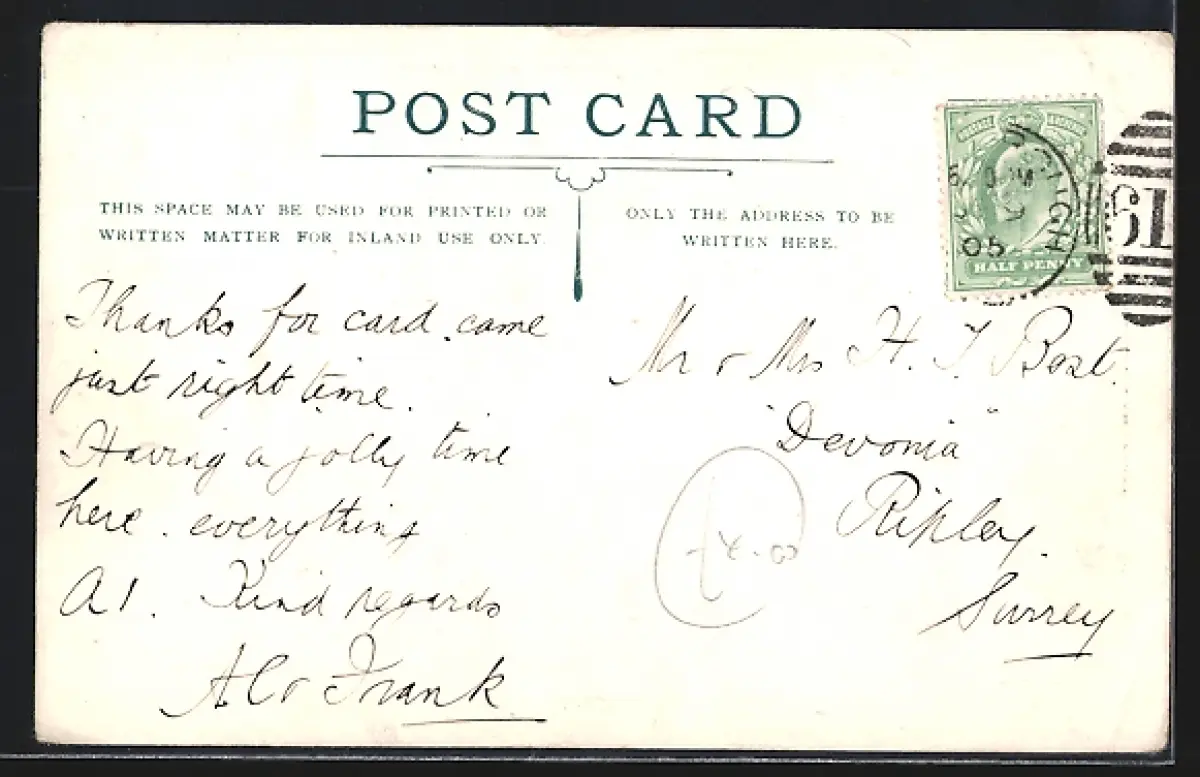 POST CARD
THIS SPACE MAY BE USED FOR PRINTED OR
WRITTEN MATTER FOR INLAND USE ONLY.
ONLY THE ADDRESS TO BE
WRITTEN HERE.
05
HALF PENNY
Thanks for card. came
just right time.
Having a jolly time
here. everything
A1. Kind regards
Frank
Mr & Mrs H. T. Bost.
"Devonia"
Ripley.
Surrey